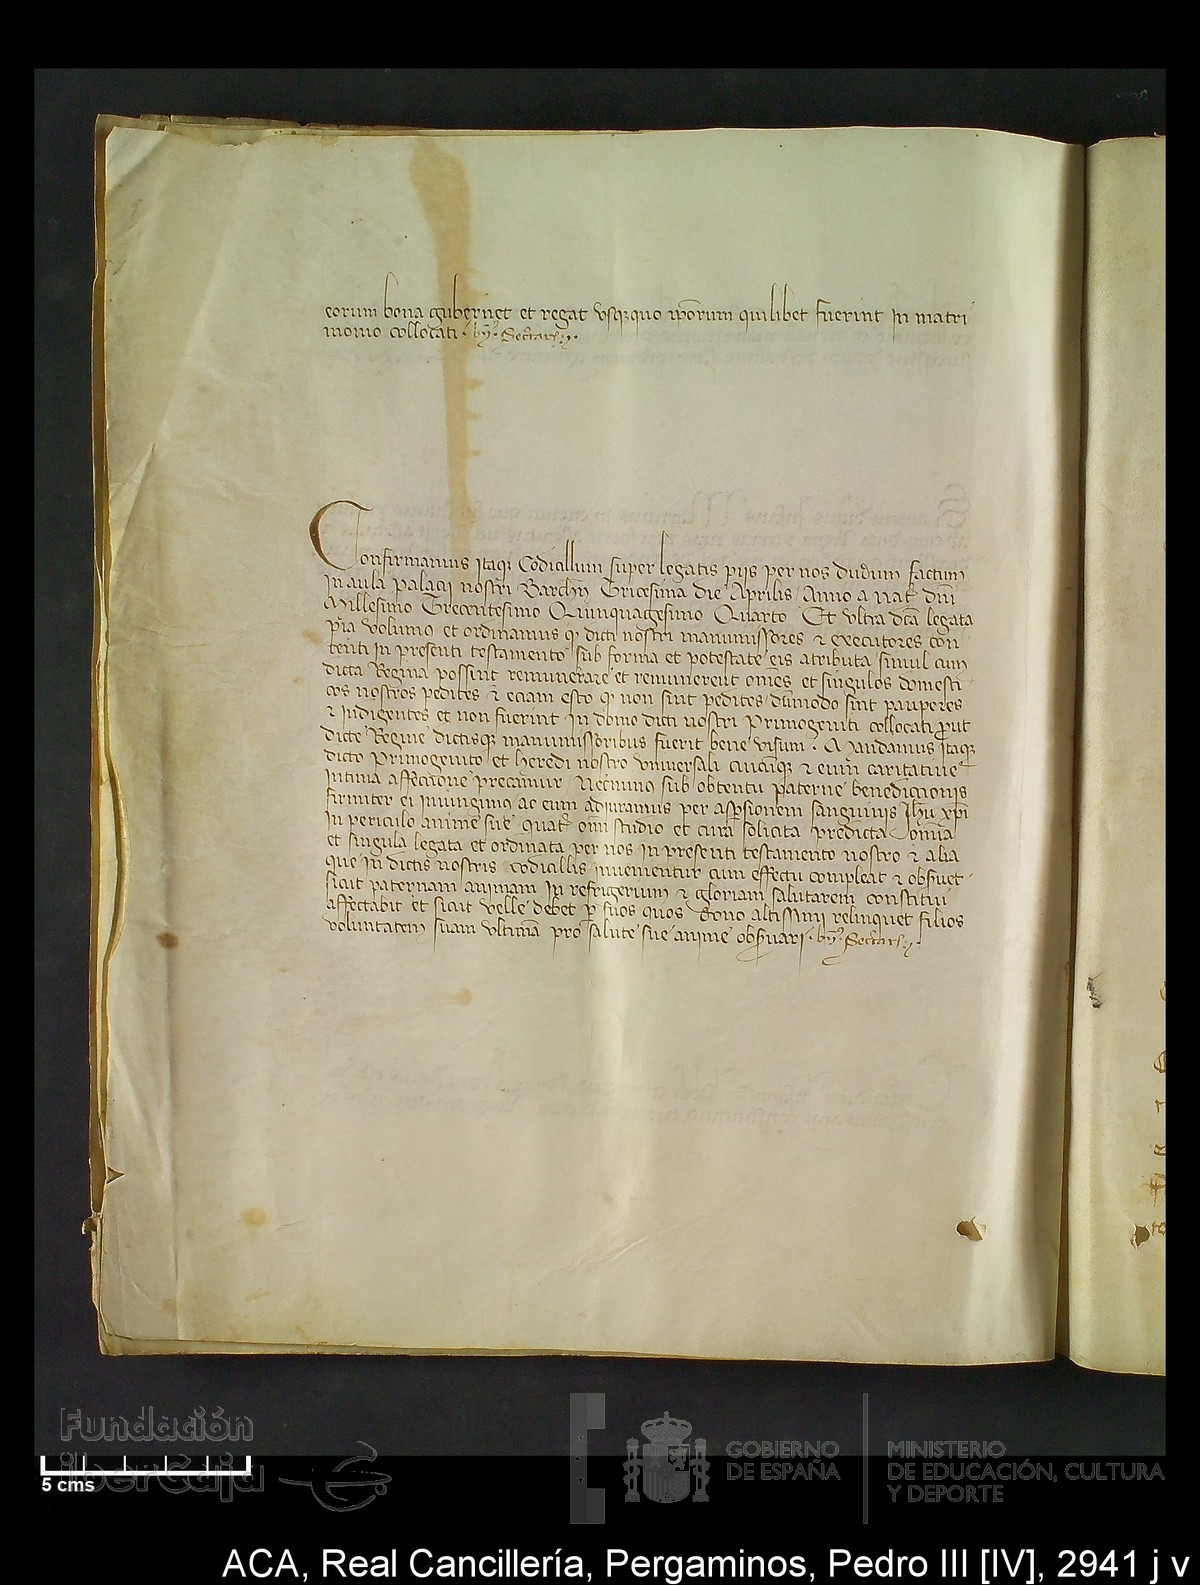 eorum bona gubernet et regat usqquo ip̄orum quilibet fuerint In matri
monio collocati
Confirmamus Itaq Codicillum super legatis pijs per nos dudum factum
In aula palacij nostri Barchn̄ Tricesima die Aprilis Anno a Nat dn̄i
Millesimo Trecentesimo Quinquagesimo Quarto Et ultra dc̄a legata
pia volumus et ordinamus q dicti nostri manumissores & executores con
tenti In presenti testamento sub forma et potestate eis atributa simul cum
dicta Regina possint remunerare et remunerent om̄es et singulos domesti
cos nostros pedites & eciam esto q non sint pedites dūmodo sint pauperes
& Indigentes et non fuerint In domo dicti nostri Primogeniti collocati prout
dicte Regine dictisq manumissoribus fuerit bene visum. Mandamus Itaq
dicto Primogenito et heredi nostro universali & eum caritative
Intima affectione precamur sub obtentu paterne benedictionis
firmiter ei Iniungimus ac eum adiuramus per aspersionem sanguinis Ihu xpi
In periculo anime sue quat om̄i studio et cura solicita predicta omnia
et singula legata et ordinata per nos In presenti testamento nostro & alia
que In dictis nostris codicillis invenientur cum effectu compleat & obs̄vet
sicut paternam animam In refrigerium & gloriam salutarem constitui
affectabit et sicut velle debet per suos quos dono altissimi relinquet filios
voluntatem suam ultimam pro salute sue anime obs̄vari
Fundación
iberCaja
5 cms
GOBIERNO
DE ESPAÑA
MINISTERIO
DE EDUCACIÓN, CULTURA
Y DEPORTE
ACA, Real Cancillería, Pergaminos, Pedro III [IV], 2941 j v